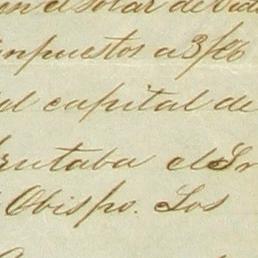 en el solar de
impuestos a 3/86
al capital de
frutaba el Sr
Obispo. Los